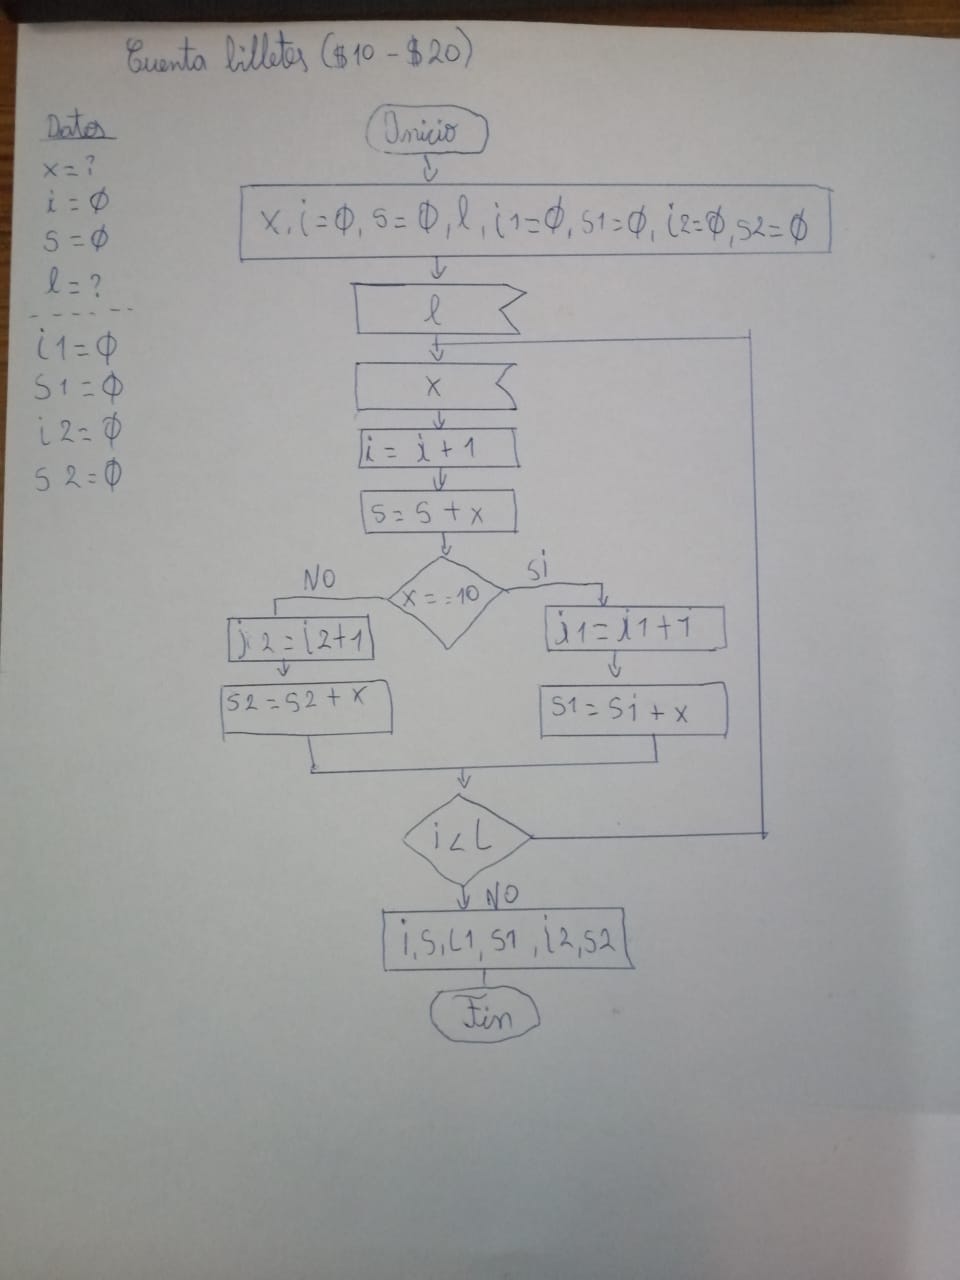 Cuenta billetes ($10 - $20)
Datos
x = ?
i = Ø
s = Ø
l = ?
i1 = Ø
s1 = Ø
i2 = Ø
s2 = Ø
Inicio
x, i = Ø, s = Ø, l, i1 = Ø, s1 = Ø, i2 = Ø, s2 = Ø
l
x
i = i + 1
s = s + x
x == 10
NO
Si
i2 = i2 + 1
i1 = i1 + i
s2 = s2 + x
s1 = si + x
i < L
NO
i, s, i1, s1, i2, s2
Fin